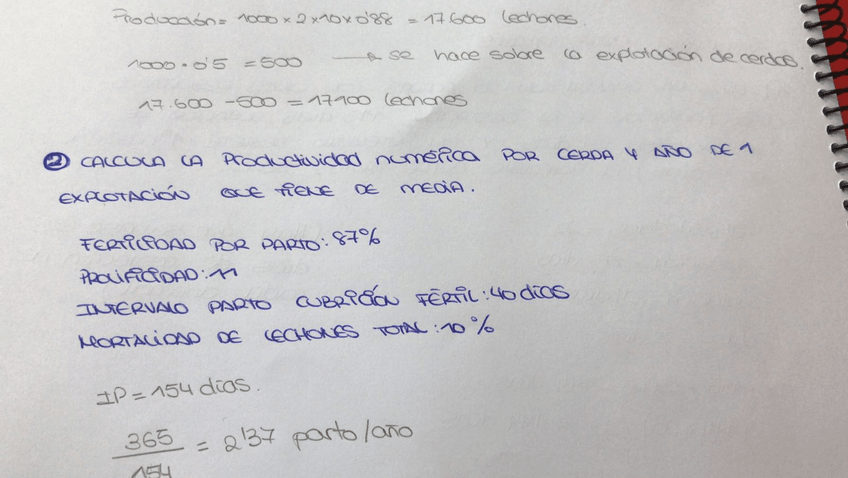 Producción = 1000 x 2 x 10 x 0'88 = 17.600 lechones.
1000 · 0'5 = 500 → se hace sobre la explotación de cerdos.
17.600 - 500 = 17100 lechones
② CALCULA LA Productividad numérica POR CERDA Y AÑO DE 1
EXPLOTACIÓN QUE TIENE DE MEDIA.
FERTILIDAD POR PARTO: 87%
PROLIFICIDAD: 11
INTERVALO PARTO CUBRICIÓN FÉRTIL: 40 días
MORTALIDAD DE LECHONES TOTAL: 10%
IP = 154 días.
365 / 154 = 2'37 parto/año